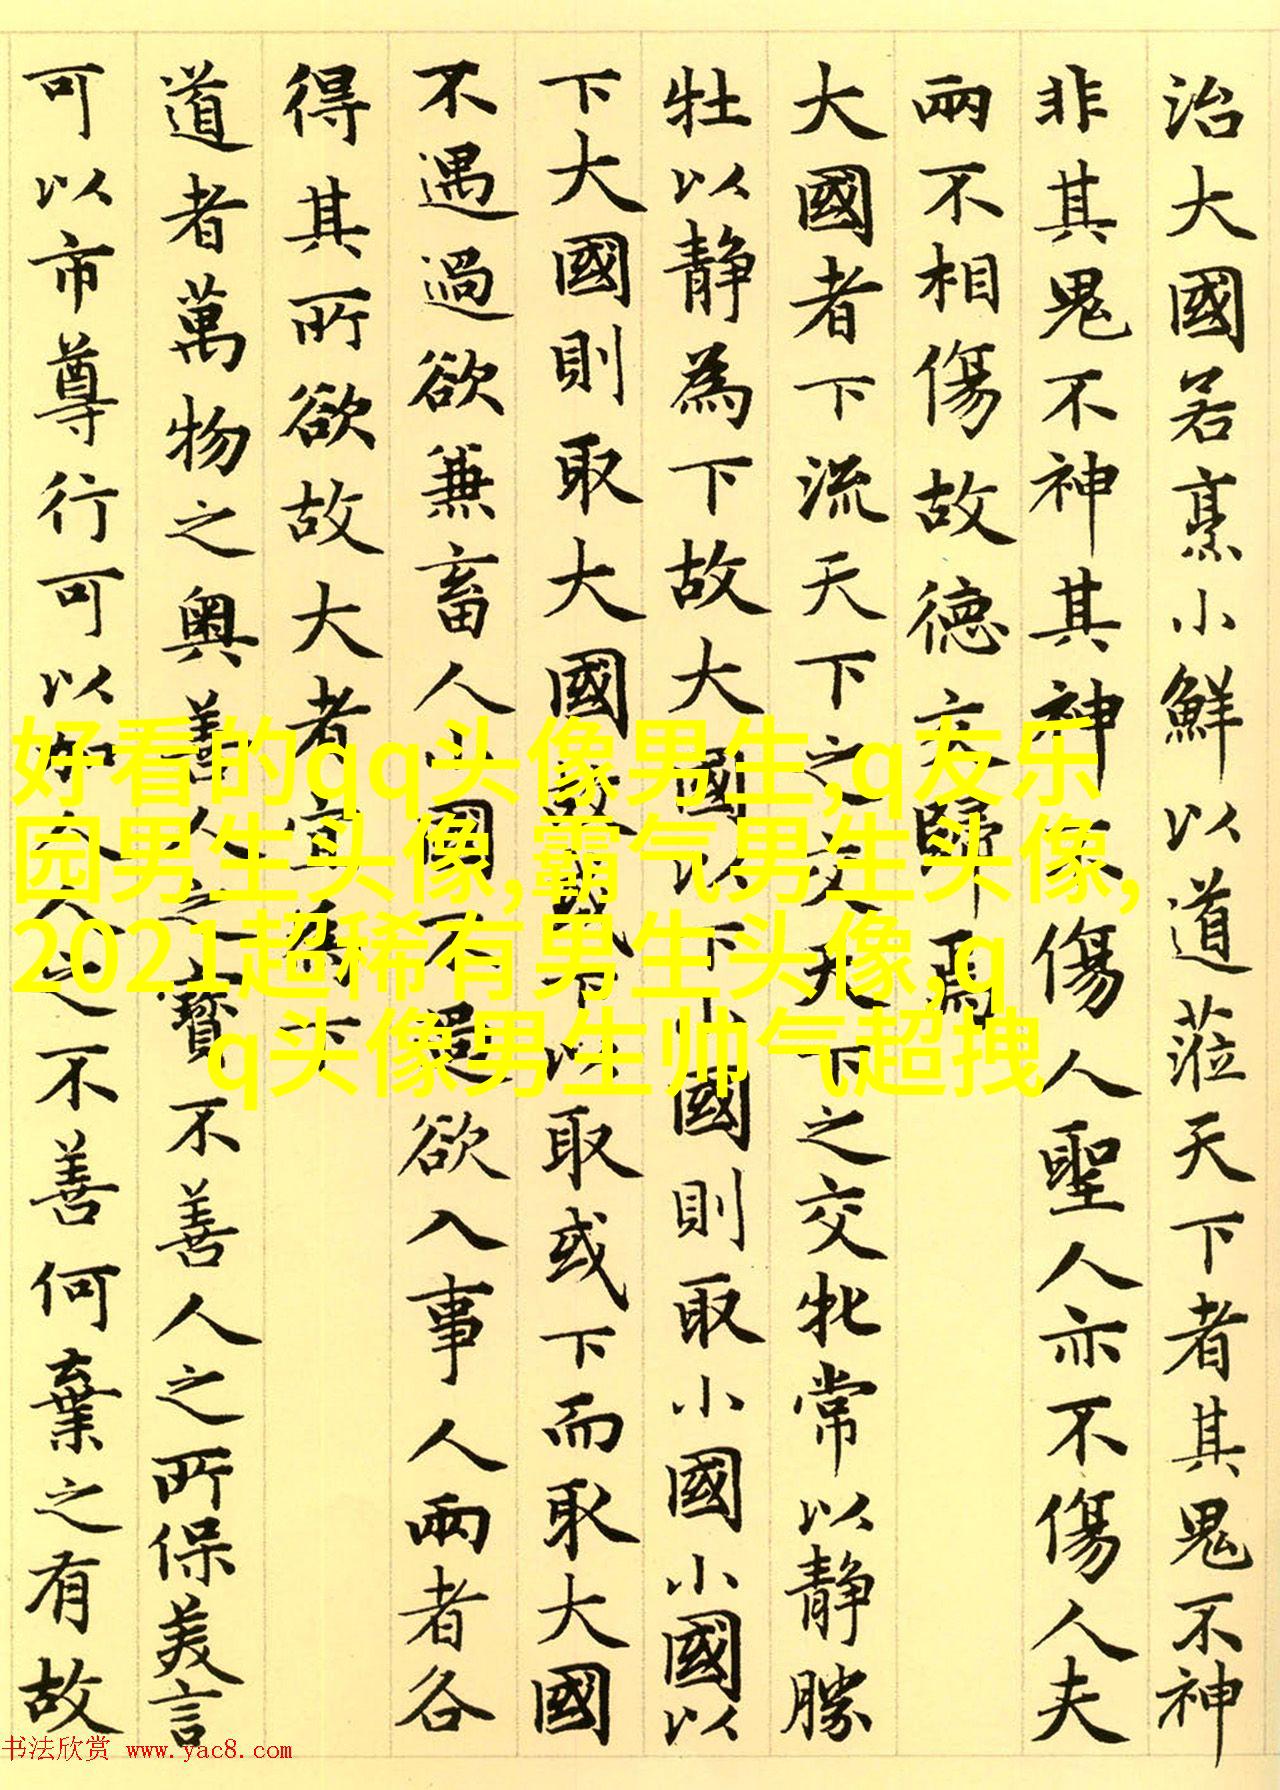 治大國若烹小鮮以道蒞天下者其鬼不神
非其鬼不神其神不傷人聖人亦不傷人夫
兩不相傷故德交歸焉
大國者下流天下之交天下之交牝常以靜勝
牡以靜為下故大國以下小國則取小國小國以
下大國則取大國故或下以取或下而取大國
不遇過欲兼畜人小國不欲入事人兩者各
得其所欲故大者宜為下
道者萬物之奧善人之寶不善人之所保美言
可以市尊行可以加人人之不善何棄之有故
好看的qq头像男生,q友乐
园男生头像,霸气男生头像,
2021超稀有男生头像,q
q头像男生帅气超拽
书法欣赏 www.yac8.com